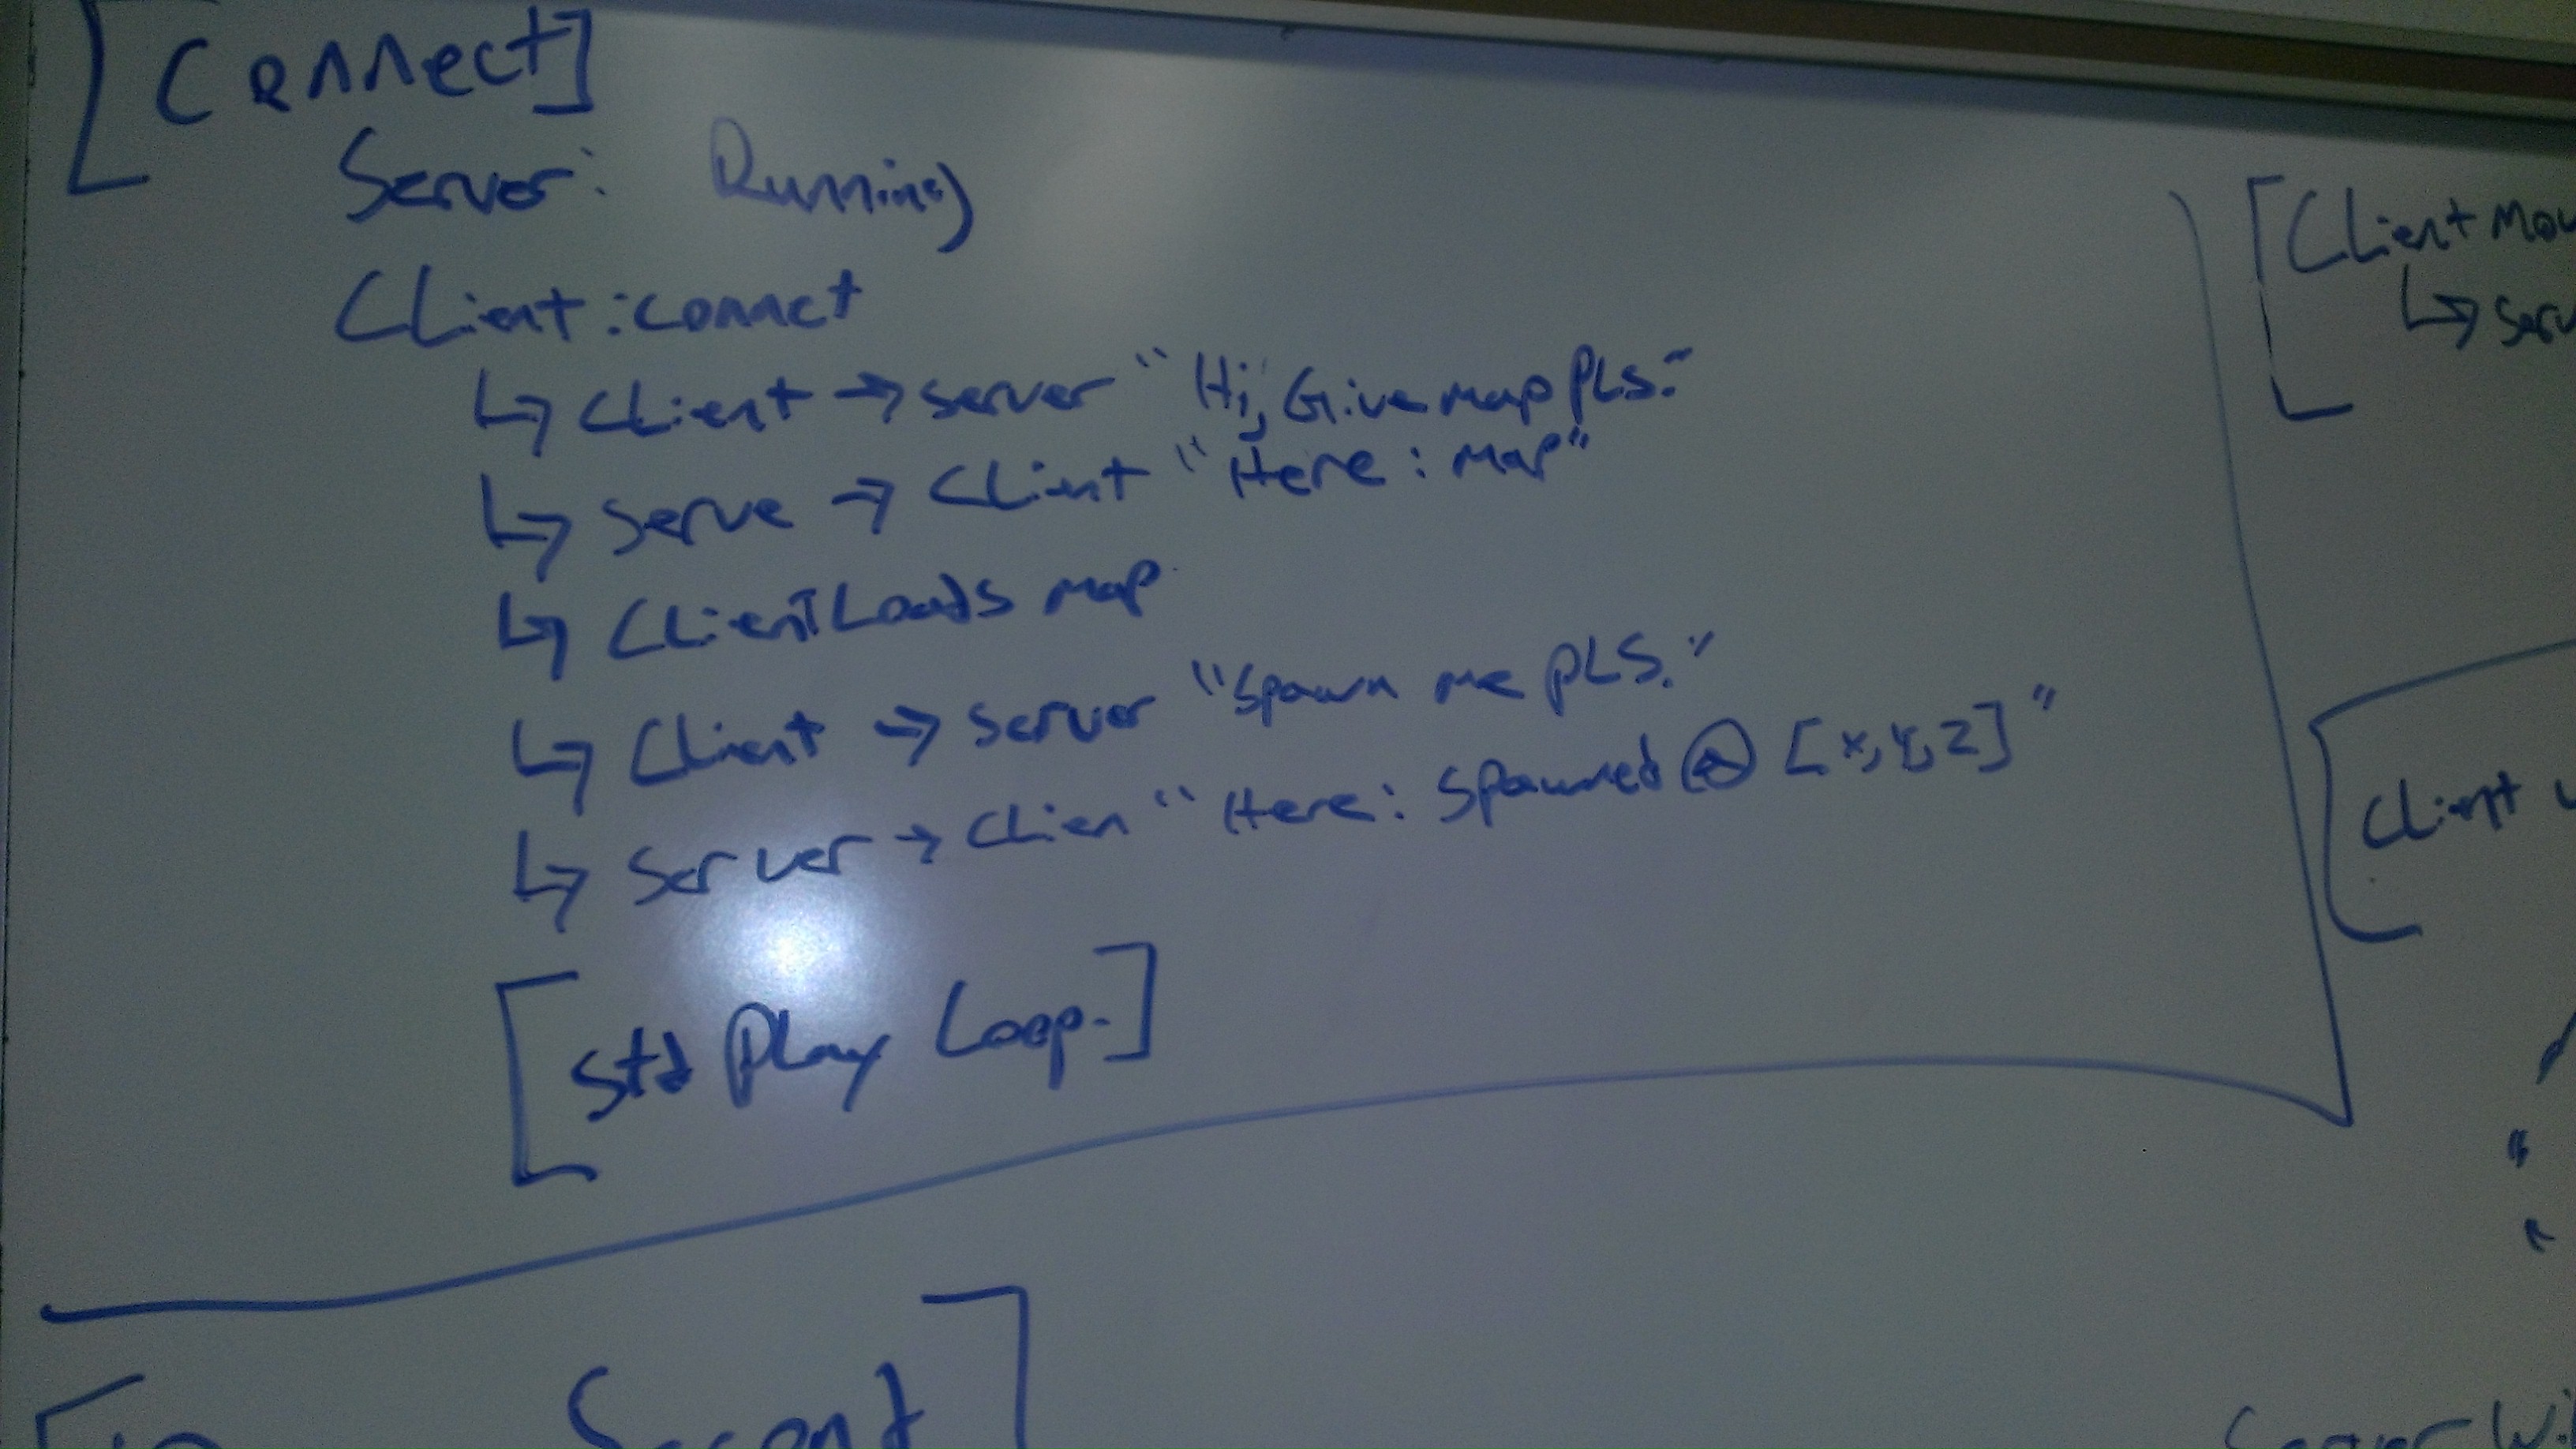 [Connect]
Server: Running
Client: connct
↳ Client → server "Hi, Give map pls."
↳ Serve → Client "Here: map"
↳ Client Loads map
↳ Client → Server "Spawn me pls."
↳ Server → Clien "Here: Spawned @ [x, y, z]"
[Std Play Loop.]
[Client Mov
↳ Serv
Client